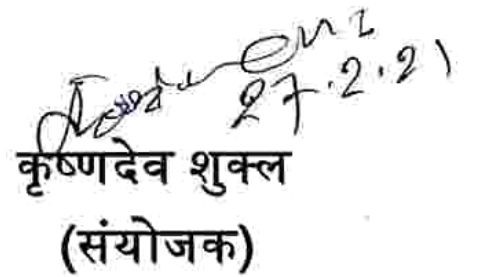 27.2.21
कृष्णदेव शुक्ल
(संयोजक)